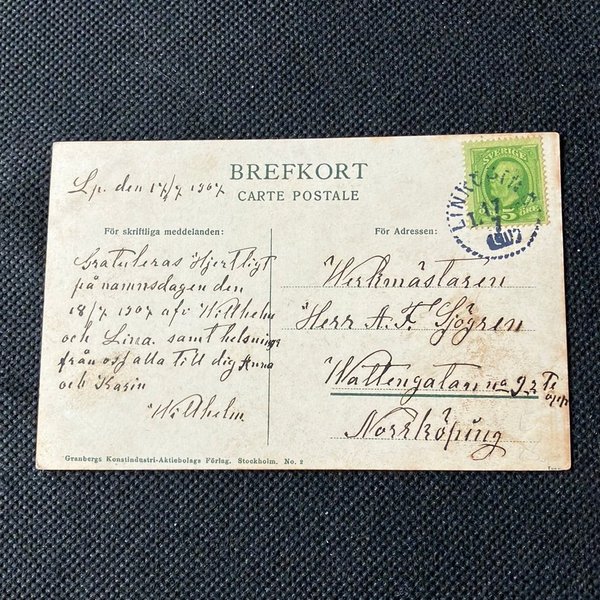 BREFKORT
CARTE POSTALE
Lp. den 17/7 1907
För skriftliga meddelanden:
För Adressen:
SVERIGE
5 ÖRE
LINKÖPING
17
7
1907
Gratuleras Hjertligt
på namnsdagen den
18/7 1907 afv Willhelm
och Lina. samt helsning
från oss alla till dig Anna
och Karin
Wilhelm
Werkmästaren
Herr A. F. Sjögren
Wattengatan
Norrköping
Granbergs Konstindustri-Aktiebolags Förlag. Stockholm. No. 2